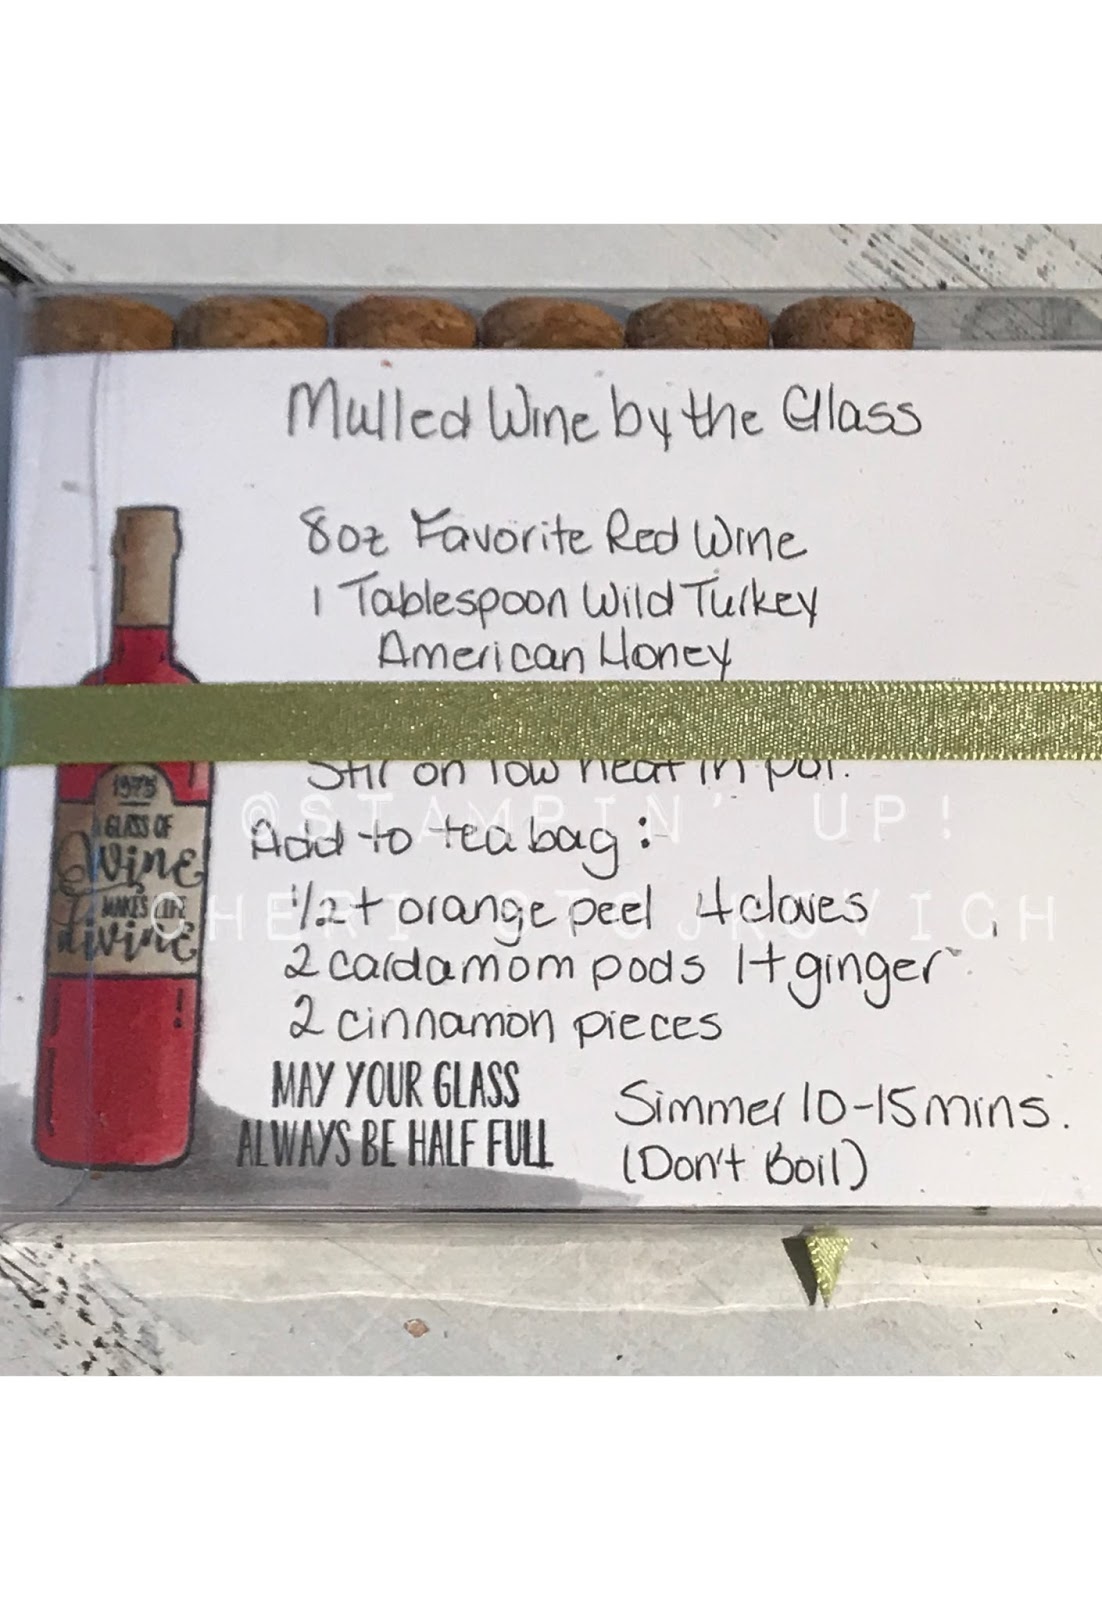 Mulled Wine by the Glass
8oz Favorite Red Wine
1 Tablespoon Wild Turkey
American Honey
Stir on low heat in pot.
Add to tea bag:
1/2t orange peel 4 cloves
2 cardamom pods 1t ginger
2 cinnamon pieces
Simmer 10-15 mins.
(Don't Boil)
MAY YOUR GLASS
ALWAYS BE HALF FULL
1975
A GLASS OF
Wine
MAKES LIFE
divine
@STAMPIN' UP!
CHERI STOJKOVICH